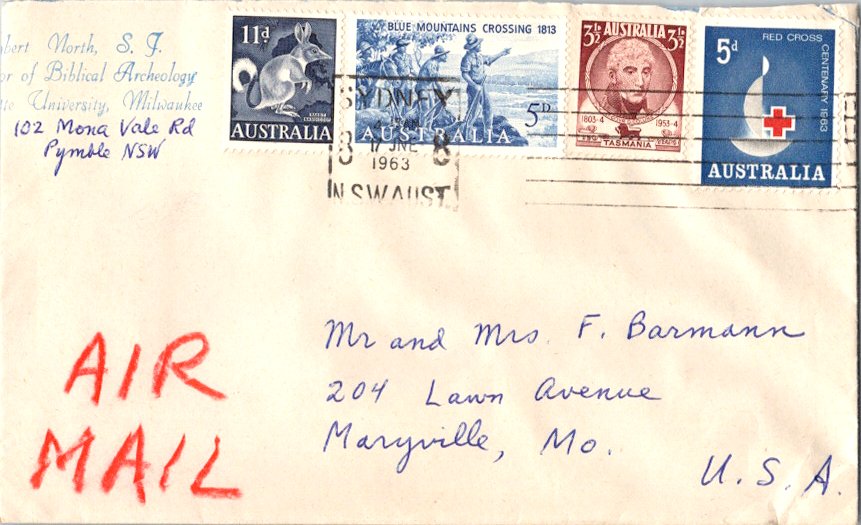 bert North, S. J.
or of Biblical Archeology
te University, Milwaukee
102 Mona Vale Rd
Pymble NSW
11d
AUSTRALIA
BLUE MOUNTAINS CROSSING 1813
5D
AUSTRALIA
3½ AUSTRALIA 3½
1803-4 1953-4
TASMANIA
5d
RED CROSS
CENTENARY 1963
AUSTRALIA
SYDNEY
8 17 JNE 8
1963
N.S.W. AUST.
AIR
MAIL
Mr and Mrs. F. Barmann
204 Lawn Avenue
Maryville, Mo.
U. S. A.